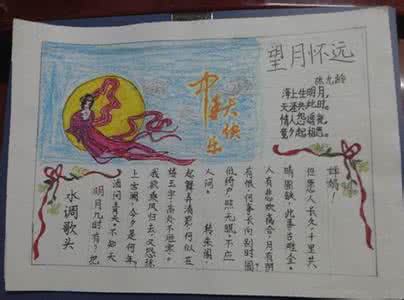 望月怀远
张九龄
海上生明月,
天涯共此时。
情人怨遥夜,
竟夕起相思。
中秋快乐
水调歌头
明月几时有?把
酒问青天。不知天
上宫阙,今夕是何年。
我欲乘风归去,又恐琼
楼玉宇,高处不胜寒。
起舞弄清影,何似在
人间。 转朱阁,
低绮户,照无眠。不应
有恨,何事长向别时圆
人有悲欢离合,月有阴
晴圆缺,此事古难全。
但愿人长久,千里共
婵娟!